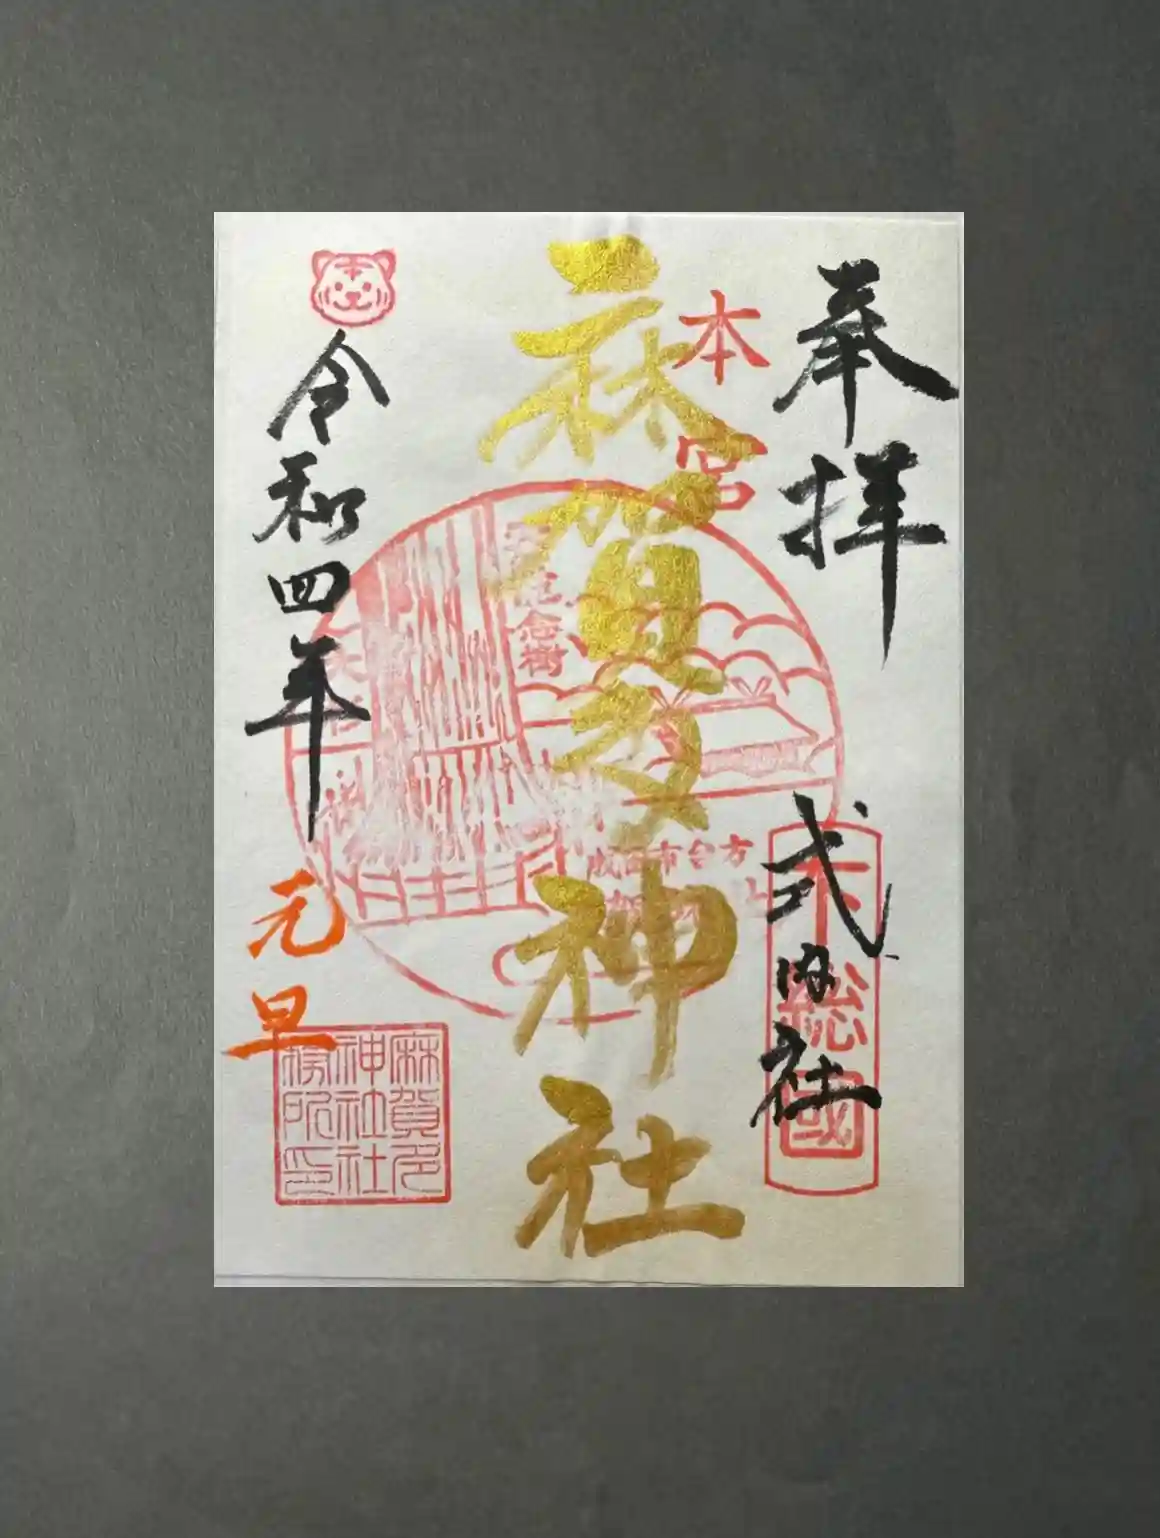 奉拝
式内社
下総國
本宮
麻賀多神社
天然記念樹
成田市台方
令和四年
元旦
麻賀多
神社社
務所印